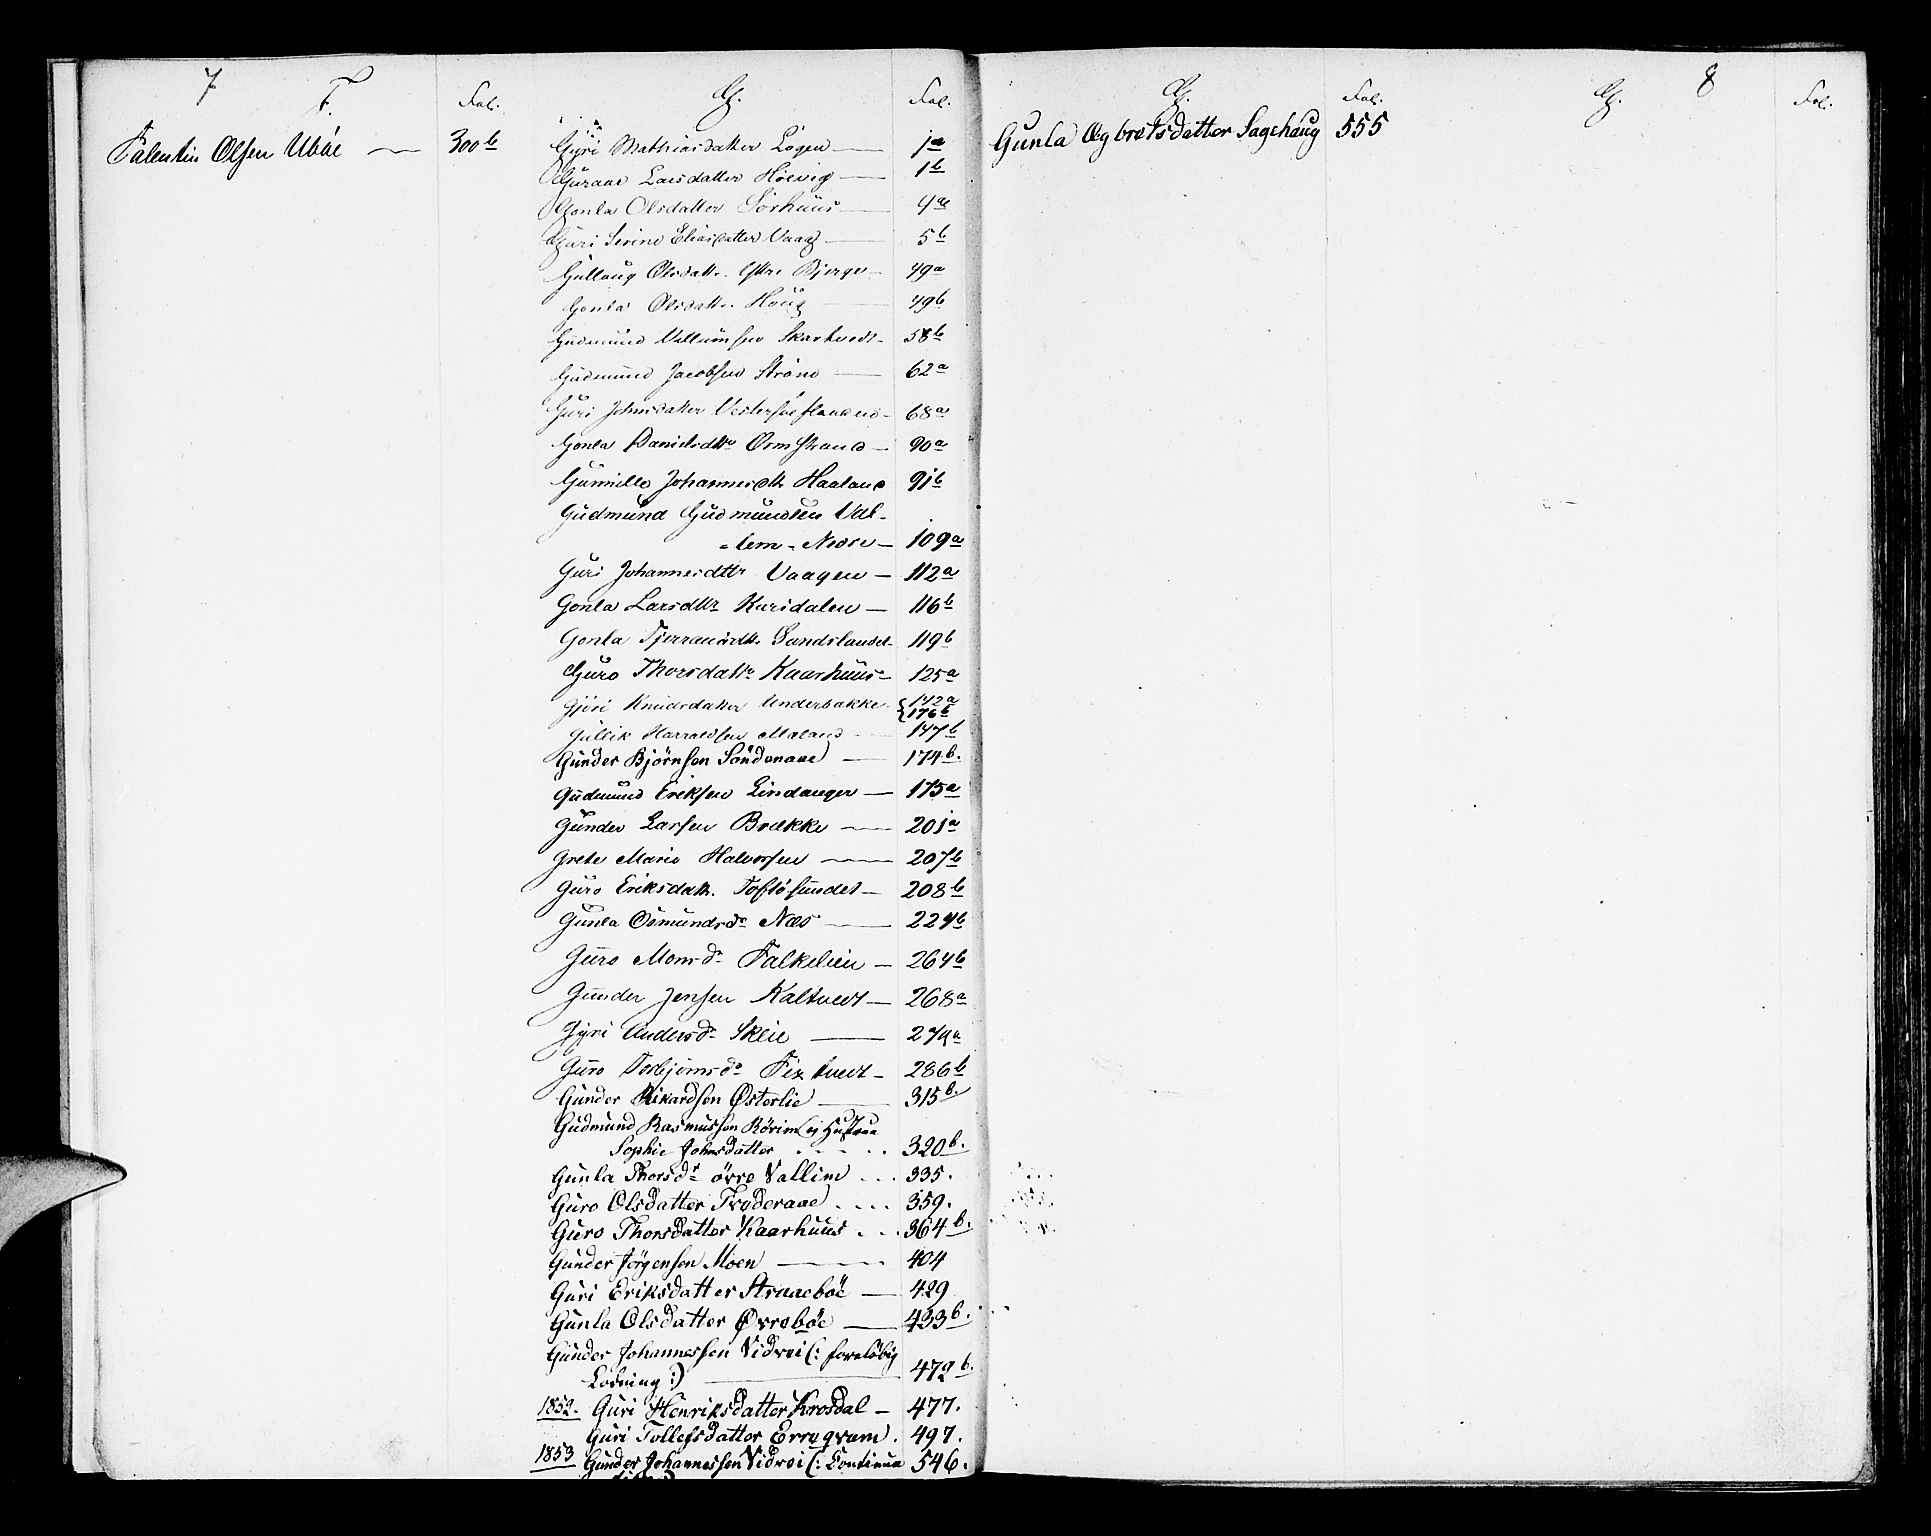 7
F.
Fol.
Falentin Olsen Ubøe — 300b
G.
Fol.
Gyri Mathiasdatter Løgen — 1a
Gurane Larsdatter Høievig — 1b
Gonla Olsdatter Sørhuus — 4a
Guri Serine Eliasdatter Vaag — 5b
Gullaug Olsdattr. Ytre Bjerge — 49a
Gonla Olsdattr. Houg — 49b
Gudmund Villumsen Skartvedt — 58b
Gudmund Jacobsen Strøno — 62a
Guri Johnsdatter — 68a
Gonla Danielsdttr Ormstrand — 90a
Gunnille Johannesdtr Haaland 91b
Gudmund Gudmundsen Val-
-lem-Nedre — 109a
Guri Johannesdttr Vaagen — 112a
Gonla Larsdttr Kursdalen — 116b
Gonla Tjerransdtr. Sandslandet 119b
Guro Thorsdattr Kaarhuus — 125a
Gjøri Knudsdatter Underbakke {142a
{176b
Gullik Harraldsen Maland — 147b
Gunder Bjørnsen Søndenaae — 174b.
Gudmund Eriksen Lindanger — 175a
Gunder Larsen Brække — 201a
Grete Marie Halvorsen — 207b
Guro Eriksdattr. Toftøsundet — 208b
Gunla Osmundsdr Næs — 224b
Guro Monsdr Falkelien — 264b
Gunder Jensen Kaltvedt — 268a
Gyri Andersdr Skeie — 279a
Guro Torbjørnsdr Fixtvedt — 286b
Gunder Rikardsen Østerlie — 315b.
Gudmund Rasmussen Rørim og Hustrue
Sophie Johnsdatter . . . . . 320b.
Gunla Thorsdr øvre Vallim . . . 335.
Guro Olsdatter Frøderaae . . . . 359.
Guro Thorsdatter Kaarhuus . . . 364b.
Gunder Jørgensen Moen — 404
Guri Eriksdatter Struaebøe — 429
Gunla Olsdatter Øvrebøe — 433b.
Gunder Johannessen Vidvei (: foreløbig
Lodning :) — 472b.
1852. Guri Henriksdatter Krosdal — 477.
Guri Tollefsdatter . 497.
1853 Gunder Johannessen Vidvei (: Continua 546.
8
G.
Fol.
G.
Fol.
Gunla Ogbretsdatter Sagehaug 555